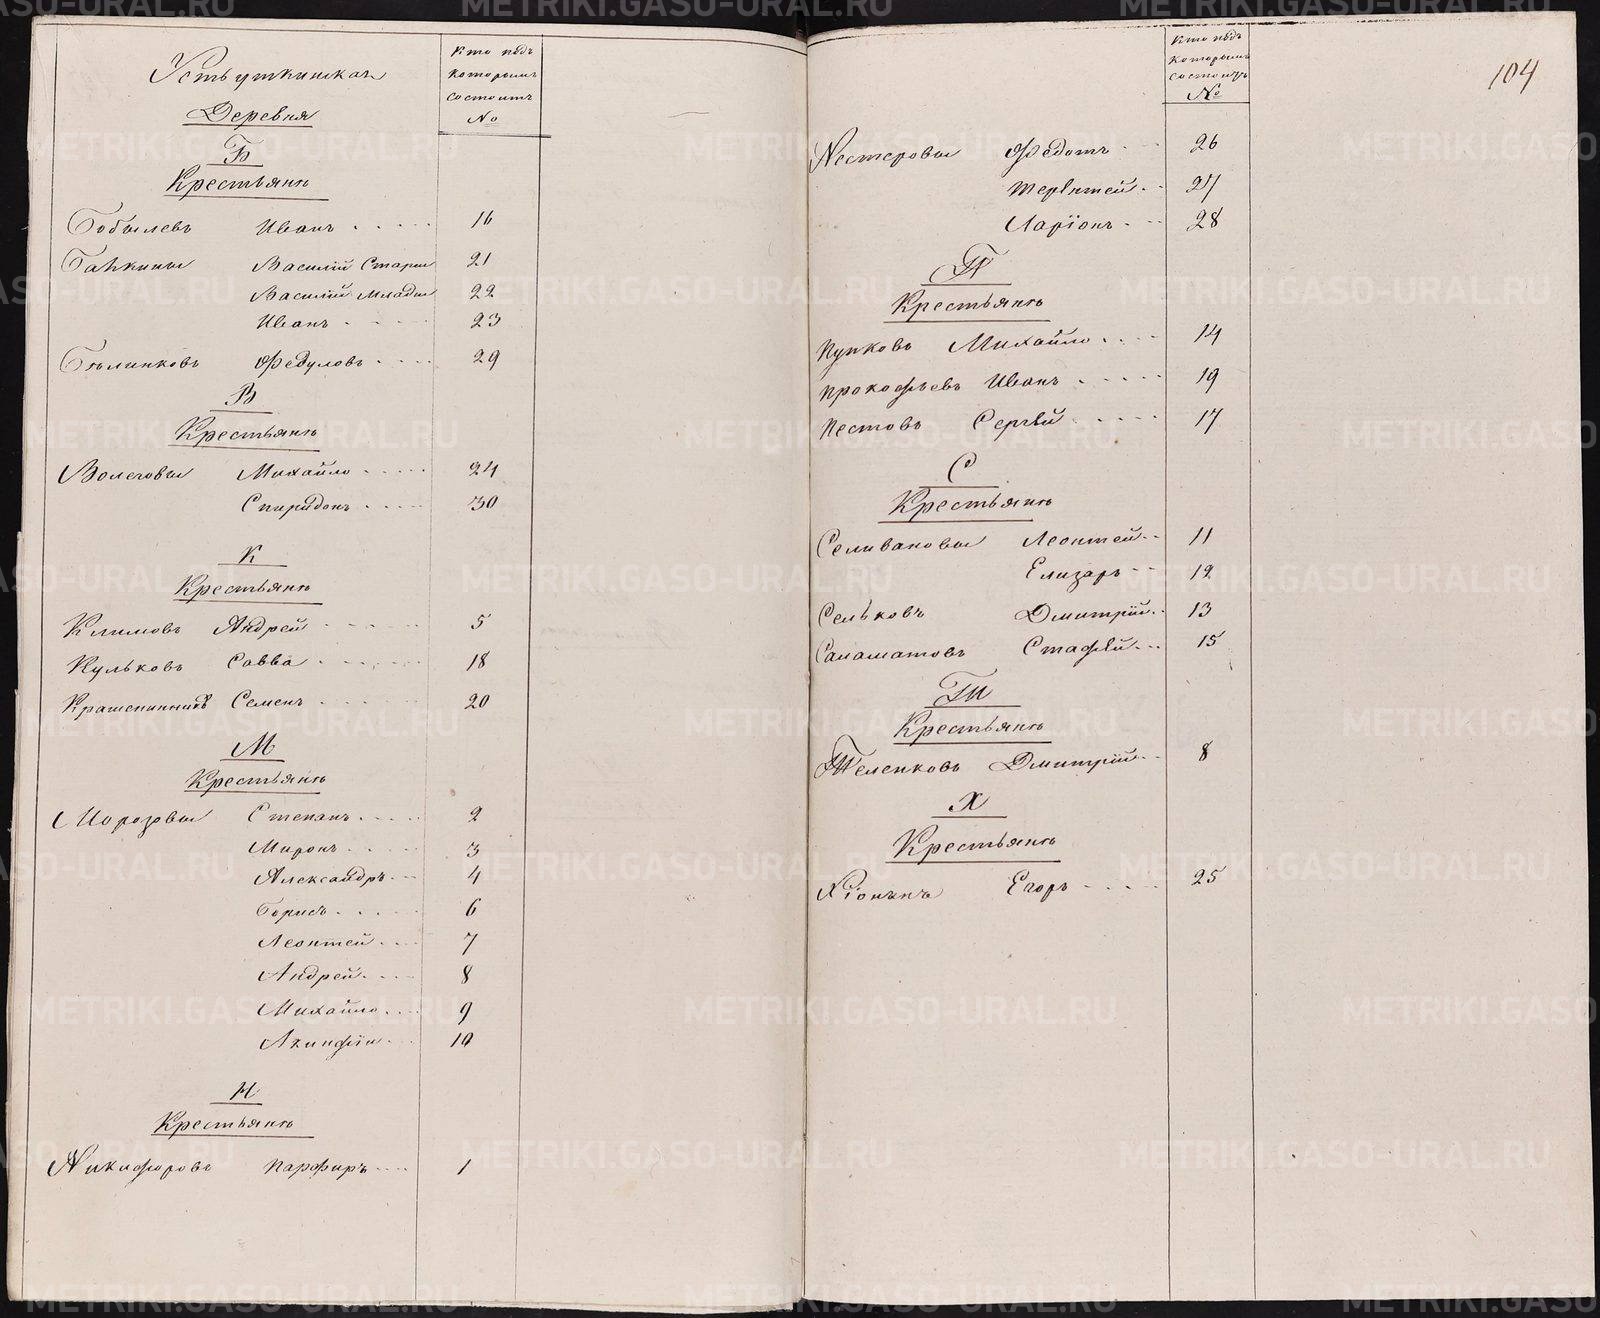 Устьуткинская
Деревня
Кто подъ
которымъ
состоитъ
№
Б
Крестьянъ
Бобылевъ Иванъ 16
Бабкины Василій Старш 21
Василій Младш 22
Иванъ 23
Бѣлинковъ Федуловъ 29
В
Крестьянъ
Волеговы Михайло 24
Спиридонъ 30
К
Крестьянъ
Климовъ Андрей 5
Кульковъ Савва 18
Крашенинников Семенъ 20
М
Крестьянъ
Морозовы Степанъ 2
Миронъ 3
Александръ 4
Борисъ 6
Леонтей 7
Андрей 8
Михайло 9
Акинфiи 10
Н
Крестьянъ
Никифоровъ Парфиръ 1
104
Кто подъ
которымъ
состоитъ
№
Нестеровы Федотъ 26
Терентей 27
Ларіонъ 28
П
Крестьянъ
Пупковъ Михайло 14
Прокофьевъ Иванъ 19
Пестовъ Сергѣй 17
С
Крестьянъ
Селивановы Леонтей 11
Елизаръ 12
Сельковъ Дмитрій 13
Саламатовъ Стафѣй 15
Т
Крестьянъ
Теленковъ Дмитрій 8
Х
Крестьянъ
Хіонинъ Егоръ 25
METRIKI.GASO-URAL.RU